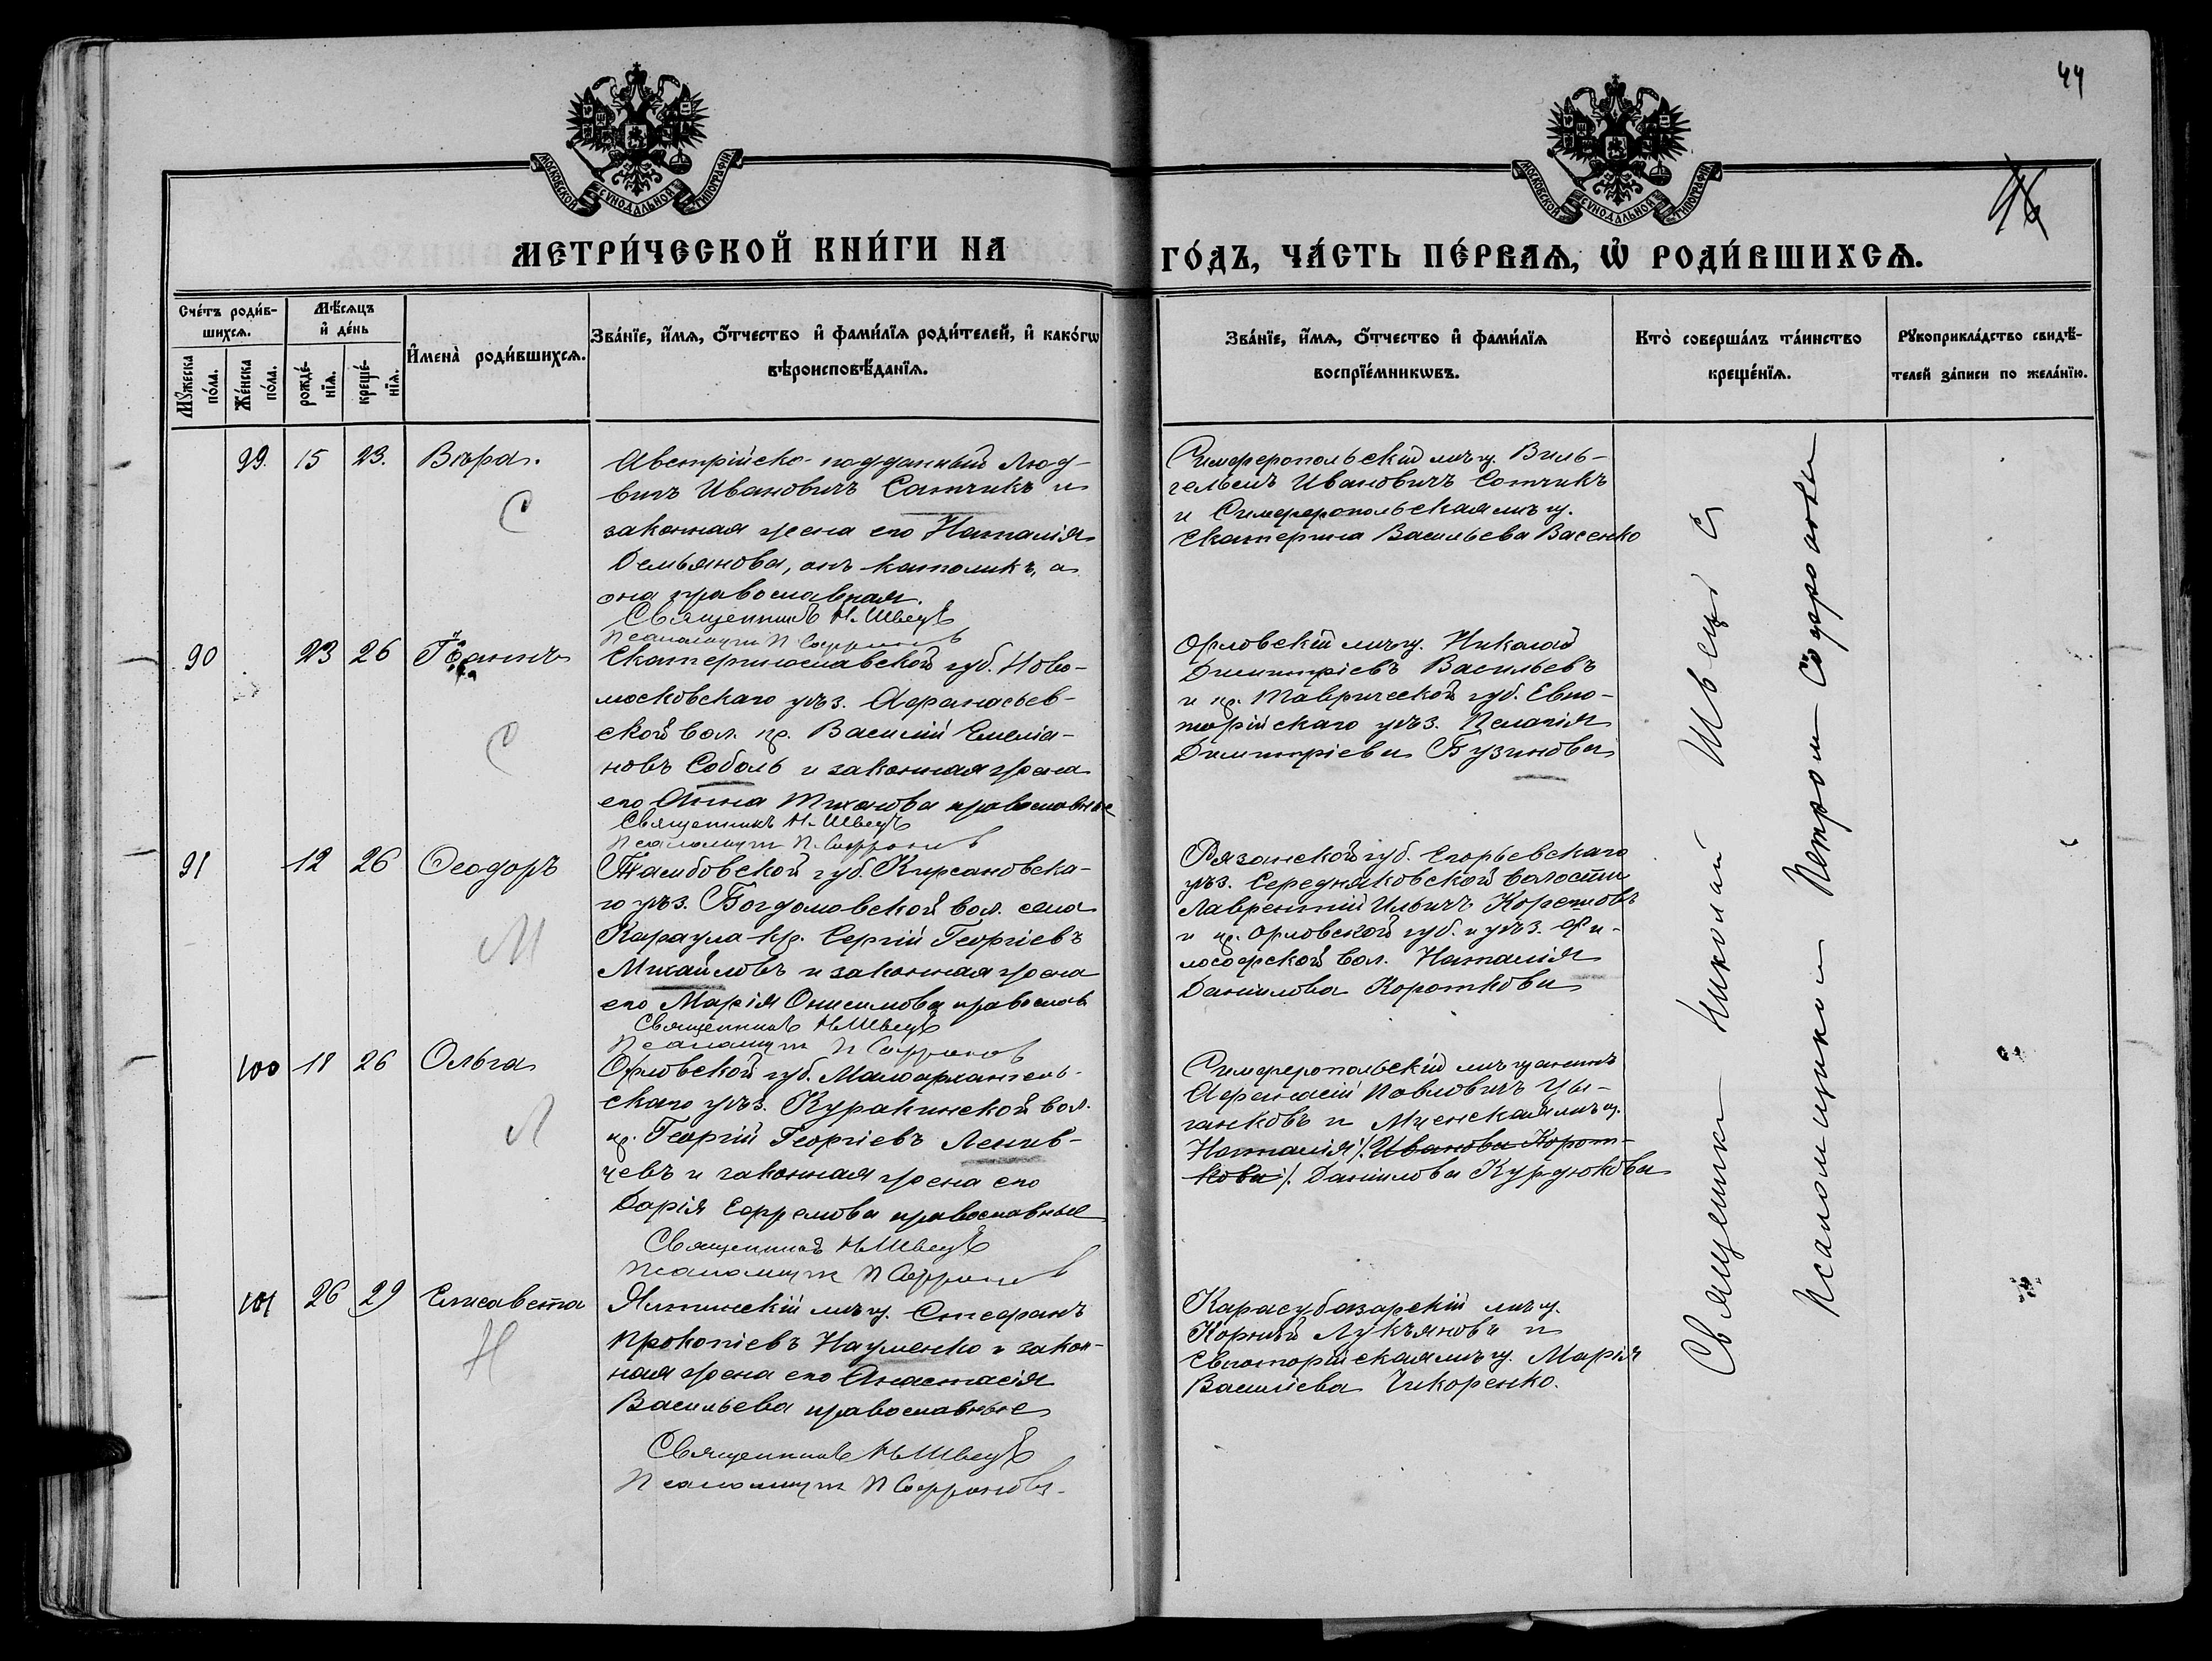 44
46
МОСКОВСКОЙ СѴНОДАЛЬНОЙ ТИПОГРАФІИ
МОСКОВСКОЙ СѴНОДАЛЬНОЙ ТИПОГРАФІИ
МЕТРИ́ЧЕСКОЙ КНИ́ГИ НА
ГО́ДЪ, ЧА́СТЬ ПЕ́РВАѦ, Ѡ҆ РОДИ́ВШИХСѦ.
Сче́тъ роди́в-
шихсѧ.
Мꙋ́жеска
по́ла.
Же́нска
по́ла.
Мѣ́сѧцъ
и҆ де́нь
рожде́-
нїѧ.
креще́-
нїѧ.
И҆мена̀ роди́вшихсѧ.
Зва́нїе, и҆́мѧ, ѻ҆́тчество и҆ фами́лїѧ роди́телей, и҆ како́гѡ
вѣроисповѣ́данїѧ.
Зва́нїе, и҆́мѧ, ѻ҆́тчество и҆ фами́лїѧ
воспрїе́мникѡвъ.
Кто̀ соверша́лъ та́инство
креще́нїѧ.
Рꙋкоприкла́дство свидѣ́-
телей за́писи по жела́нїю.
99. 15 23. Вѣра.
С
Австрійско-подданный Люд-
вигъ Ивановичъ Сотчикъ и
законная жена его Наталія
Демьянова, онъ католикъ, а
она православная.
Священникъ Н. Швецъ
Псаломщик П. Софронов
Симферопольскій мѣщ. Виль-
гельмъ Ивановичъ Сотчикъ
и Симферопольская мѣщ.
Екатерина Васильева Васенко
90 23 26 Іоаннъ
С
Екатеринославской губ. Ново-
московскаго уѣз. Афанасьев-
ской вол. кр. Василій Емелія-
новъ Соболь и законная жена
его Анна Тихонова православные
Священникъ Н. Швецъ
Псаломщик П. Софронов
Орловскій мѣщ. Николай
Димитріевъ Васильевъ
и кр. Таврической губ. Евпа-
торійскаго уѣз. Пелагія
Димитріева Бузинова
91 12 26 Ѳеодоръ
М
Тамбовской губ. Кирсановска-
го уѣз. Богдановской вол. села
Караула кр. Сергій Георгіевъ
Михайловъ и законная жена
его Марія Онисимова православ
Священникъ Н. Швецъ
Псаломщик П Софронов
Рязанской губ. Егорьевскаго
уѣз. Середняковской волости
Лаврентій Ильичъ
и кр. Орловской губ. и уѣз. Фи-
лософской вол. Наталія
Данилова Короткова
100 18 26 Ольга
Л
Орловской губ. Малоархангель-
скаго уѣз. Куракинской вол.
кр. Георгій Георгіевъ Ленив-
цевъ и законная жена его
Дарія Ефремова православные
Священникъ Н. Швецъ
Псаломщик П Софронов
Симферопольскій мѣщанинъ
Афанасій Павловичъ Цы-
ганковъ и Мценская мѣщ.
Наталія /: Иванова Корот-
кова :/ Данилова Курдюкова
101 26 29 Елисавета
Н
Ялтинскій мѣщ. Стефанъ
Прокопіевъ Науменко и закон-
ная жена его Анастасія
Васильева православные
Священникъ Н. Швецъ
Псаломщик П Софроновъ
Карасубазарскій мѣщ.
Корнилій Лукьяновъ и
Евпаторійская мѣщ. Марія
Василіева Чикоренко.
Священникъ Николай Швецъ съ
Псаломщикомъ Петромъ Софроновым